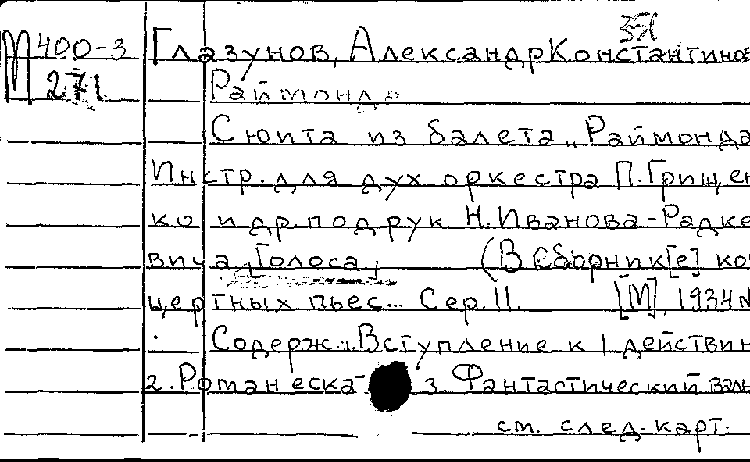 3-Я
М 400-3 Глазунов, Александр Константинов
271 Раймонда
Сюита из балета „Раймонда
Инстр. для дух оркестра П. Грищен
ко и др. под рук Н. Иванова-Радке
вича „Голоса" (В Сборник[е] кон
цертных пьес... Сер. II. [М], 1934
Содерж.: 1. Вступление к I действи
2. Романеска 3. Фантастический валь
см. след. карт.